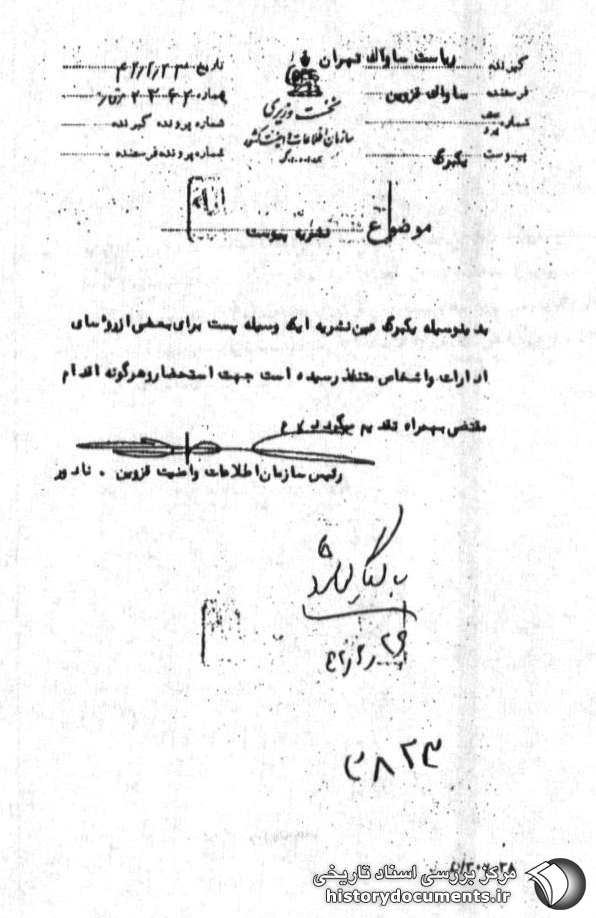 گیرنده ریاست ساواک تهران
فرستنده ساواک قزوین
شماره
پیوست یکبرگ
نخست وزیری
سازمان اطلاعات و امنیت کشور
تاریخ
شماره
شماره پرونده گیرنده
شماره پرونده فرستنده
موضوع نشریه پیوست
بدینوسیله یکبرگ عین نشریه ایکه وسیله پست برای بعضی از روسای
ادارات و اشخاص متنفذ رسیده است جهت استحضار و هرگونه اقدام
مقتضی بهمراه تقدیم میگردد
رئیس سازمان اطلاعات و امنیت قزوین . نادور
۳۸۲۳
مرکز بررسی اسناد تاریخی
historydocuments.ir